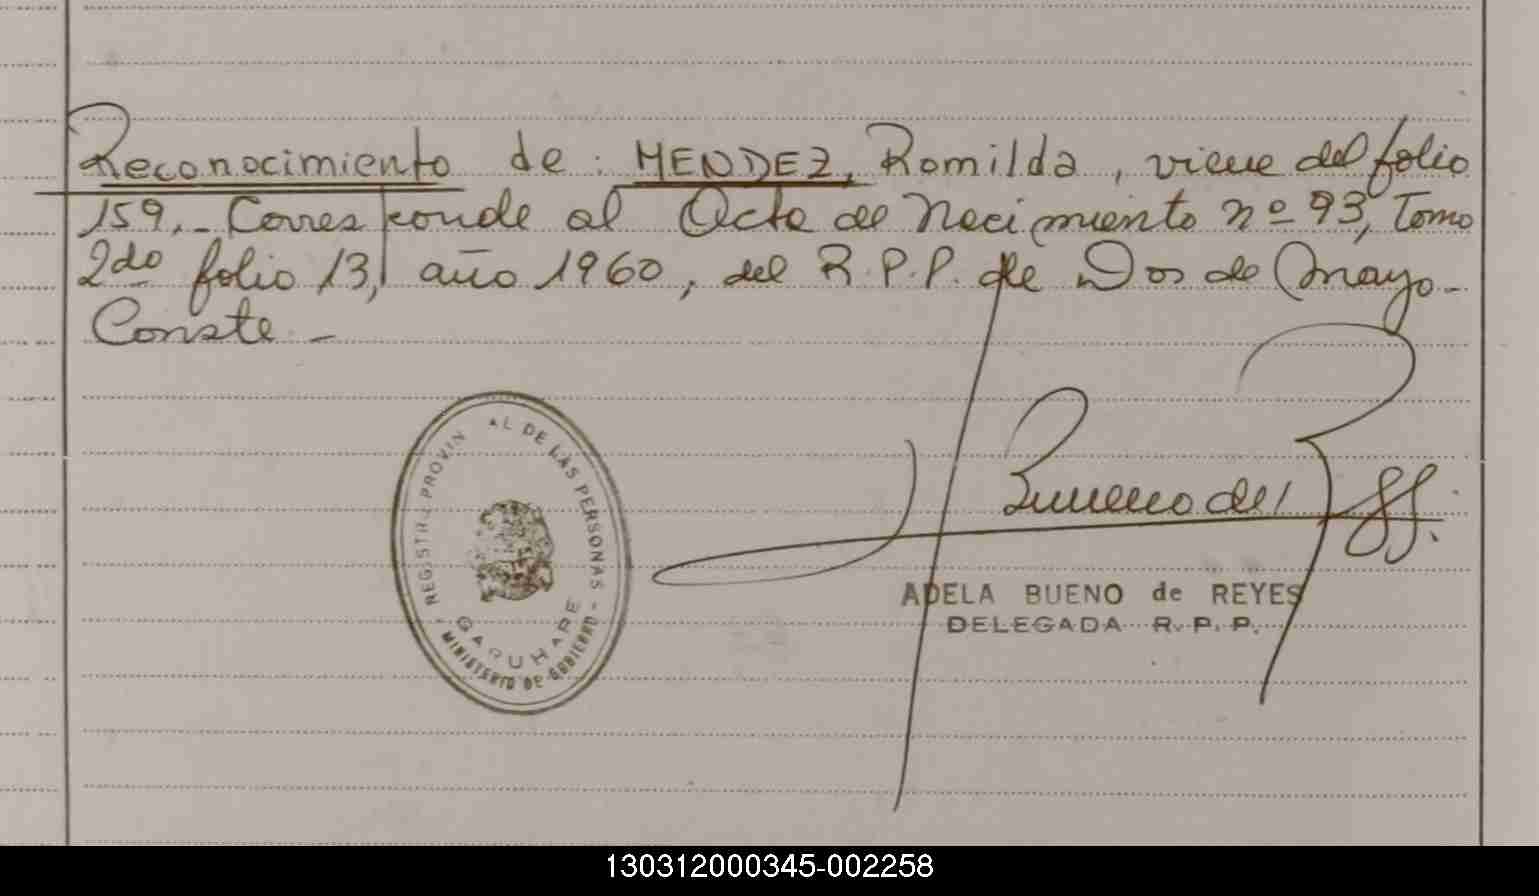 Reconocimiento de: MENDEZ, Romilda, viene del folio
159.- Corresponde al Acta de Nacimiento nº 93, Tomo
2do folio 13, año 1960, del R.P.P. de Dos de Mayo.-
Conste.-
REGISTRO PROVINCIAL DE LAS PERSONAS
GARUHAPE
- MINISTERIO DE GOBIERNO -
Bueno de R
ADELA BUENO de REYES
DELEGADA R.P.P.
130312000345-002258